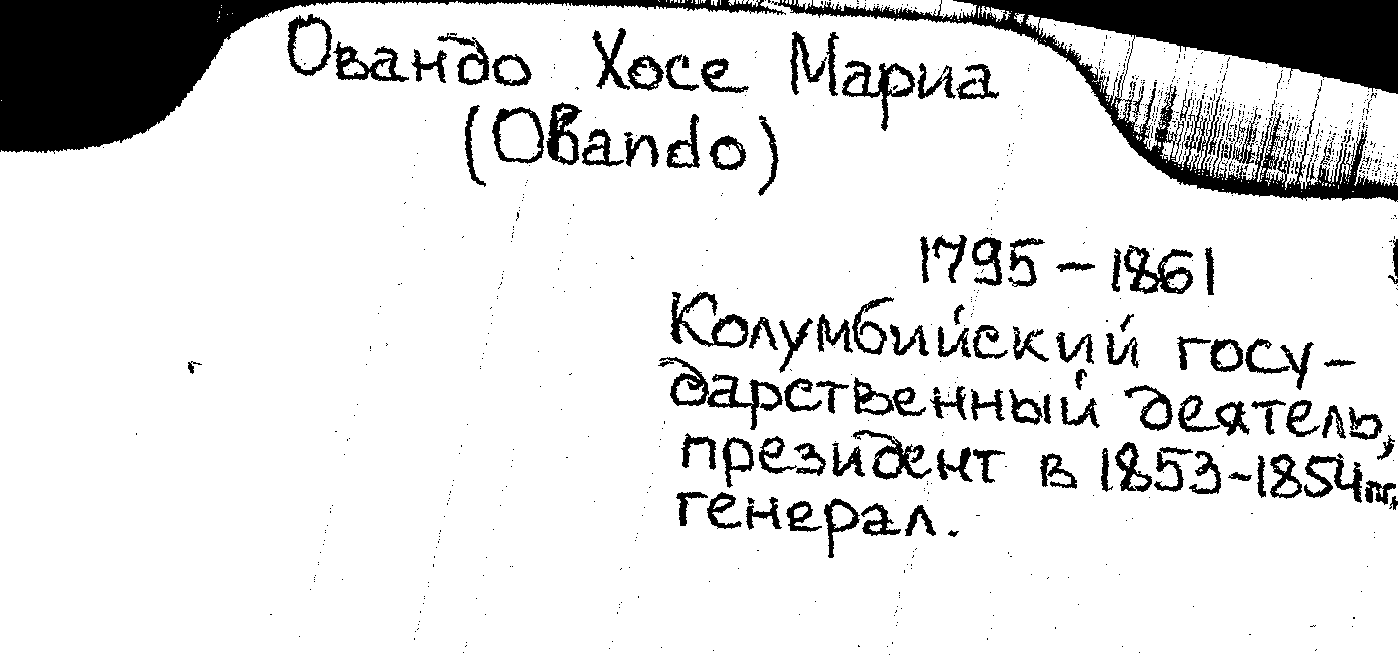 Овандо Хосе Мариа
(Obando)
1795-1861
Колумбийский госу-
дарственный деятель,
президент в 1853-1854 гг.
генерал.